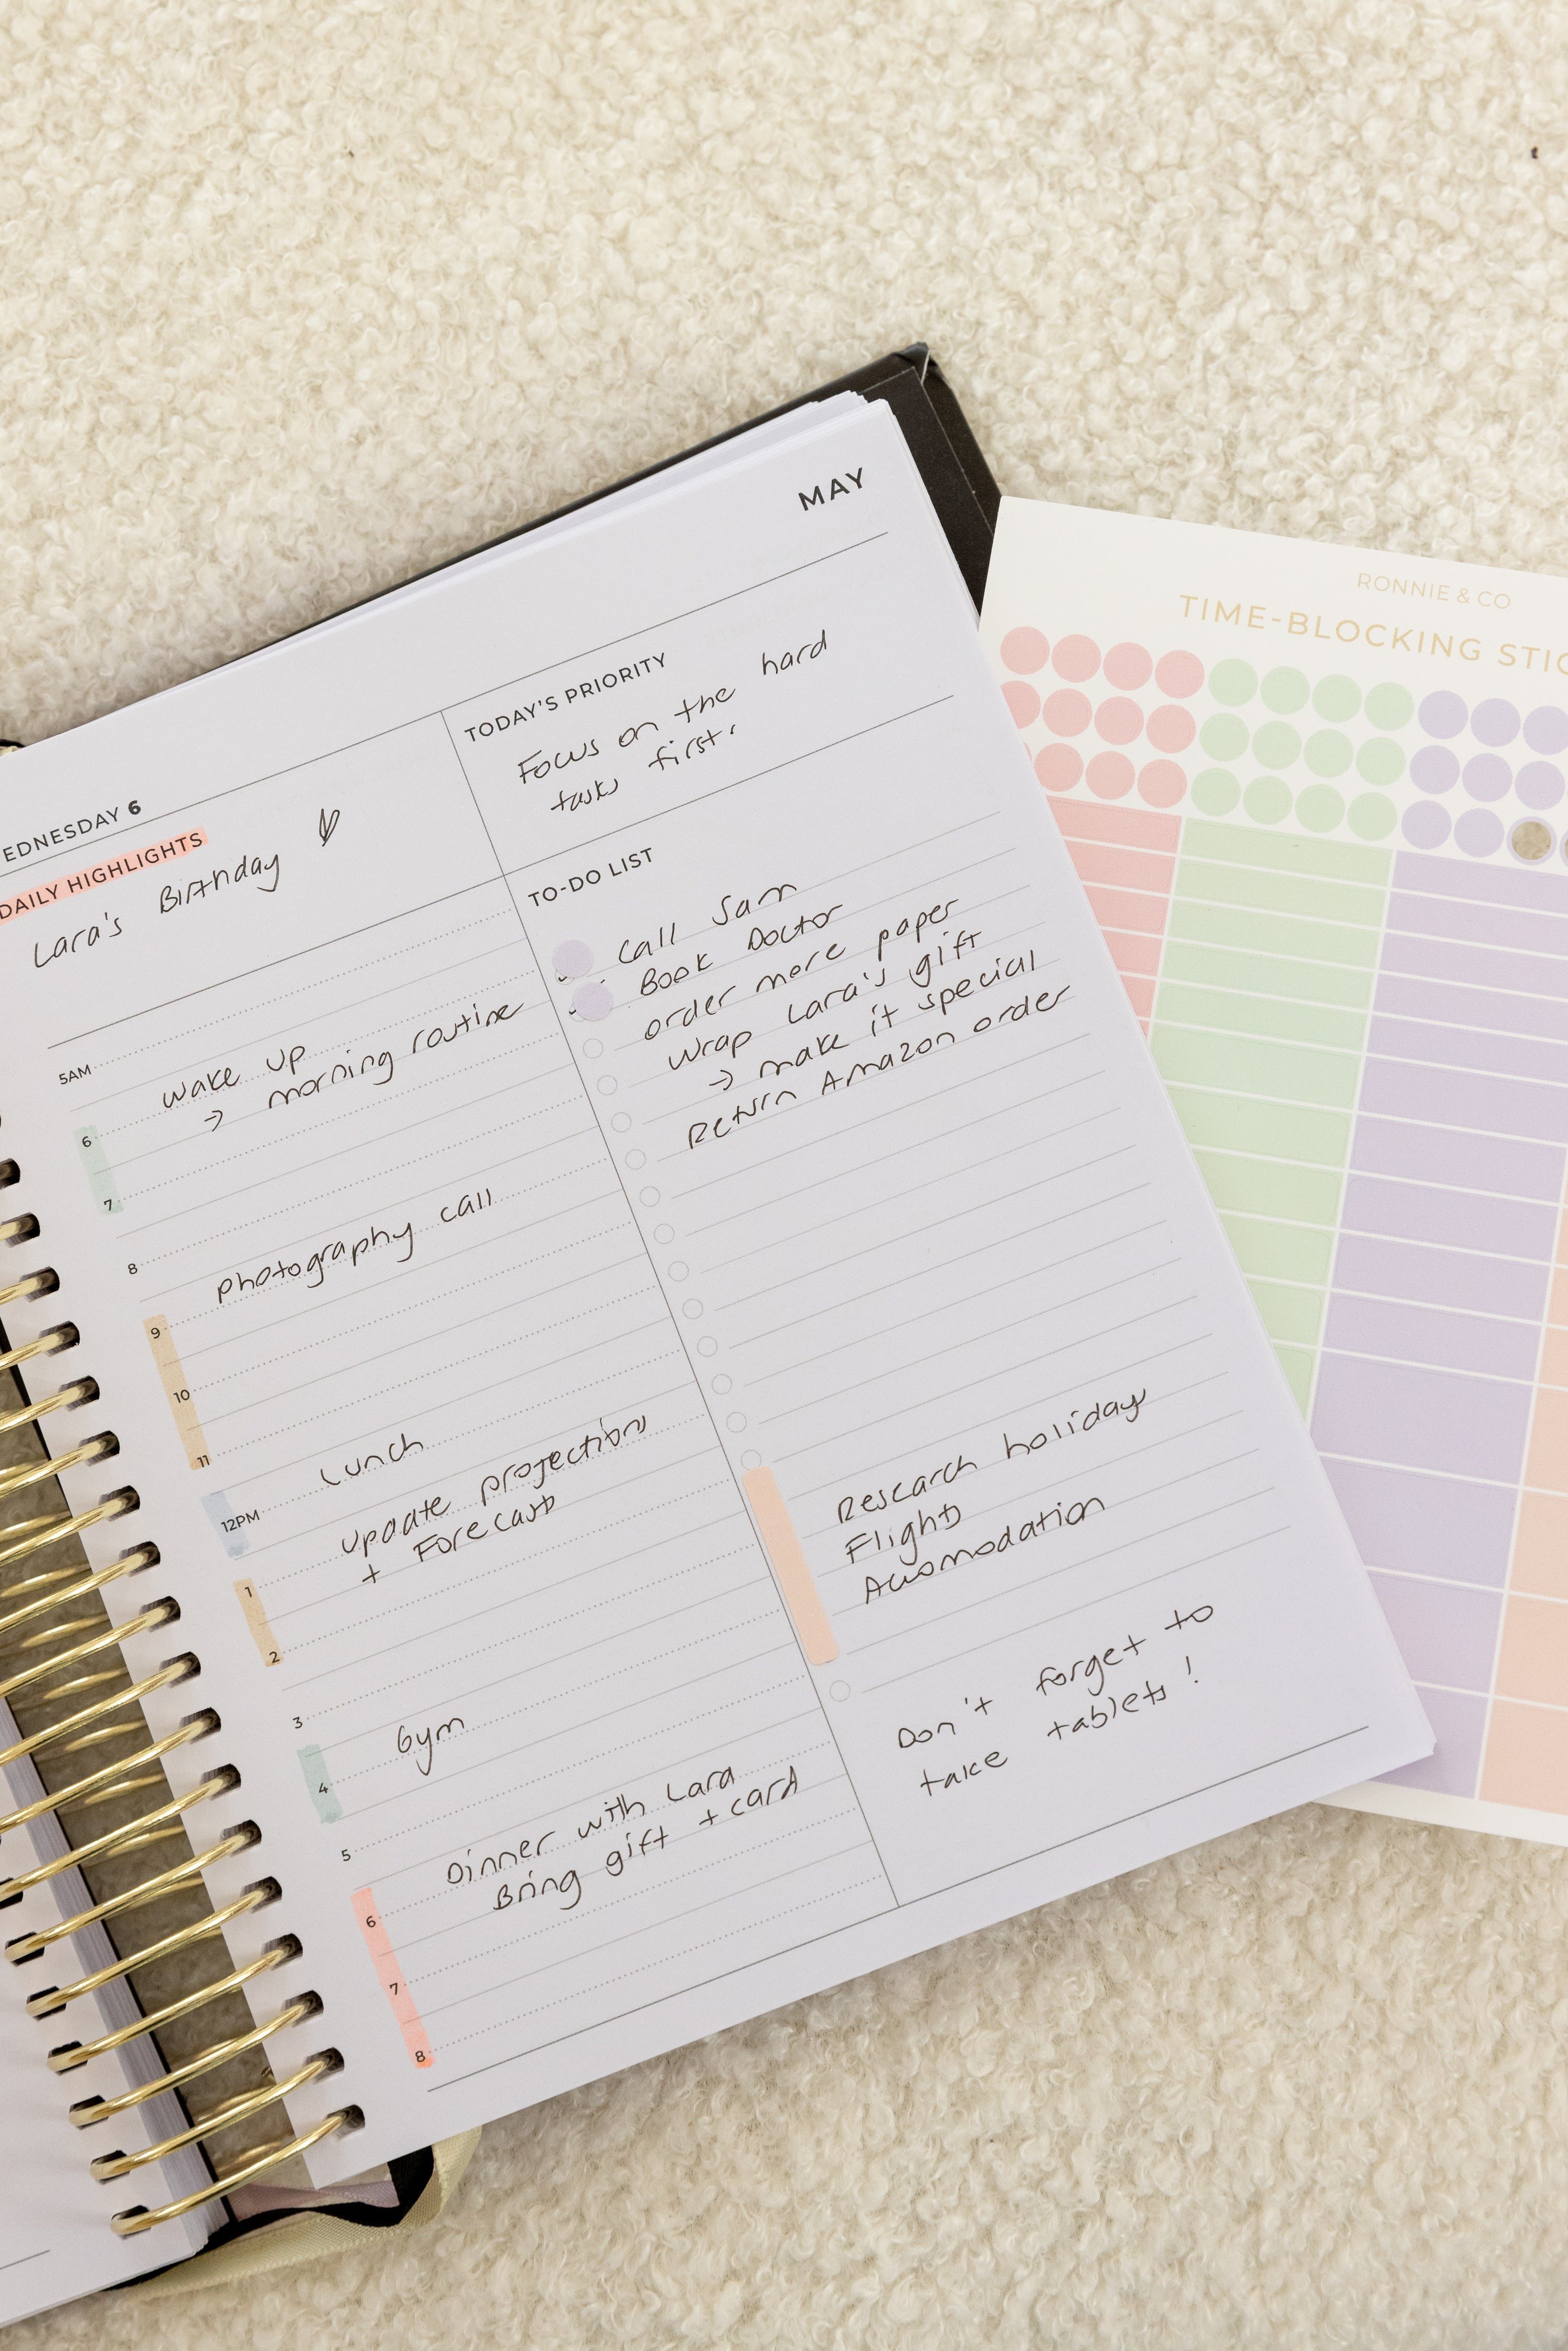 MAY
EDNESDAY 6
DAILY HIGHLIGHTS
Lara's Birthday
5AM
wake up
→ morning routine
6
7
8
photography call
9
10
11
Lunch
12PM
update projections
+ Forecast
1
2
3
Gym
4
5
Dinner with Lara
Bring gift + card
6
7
8
TODAY'S PRIORITY
Focus on the hard
tasks first.
TO-DO LIST
Call Sam
Book Doctor
order more paper
wrap Lara's gift
→ make it special
Return Amazon order
Research holiday
Flights
Accomodation
Don't forget to
take tablets!
RONNIE & CO
TIME-BLOCKING STIC